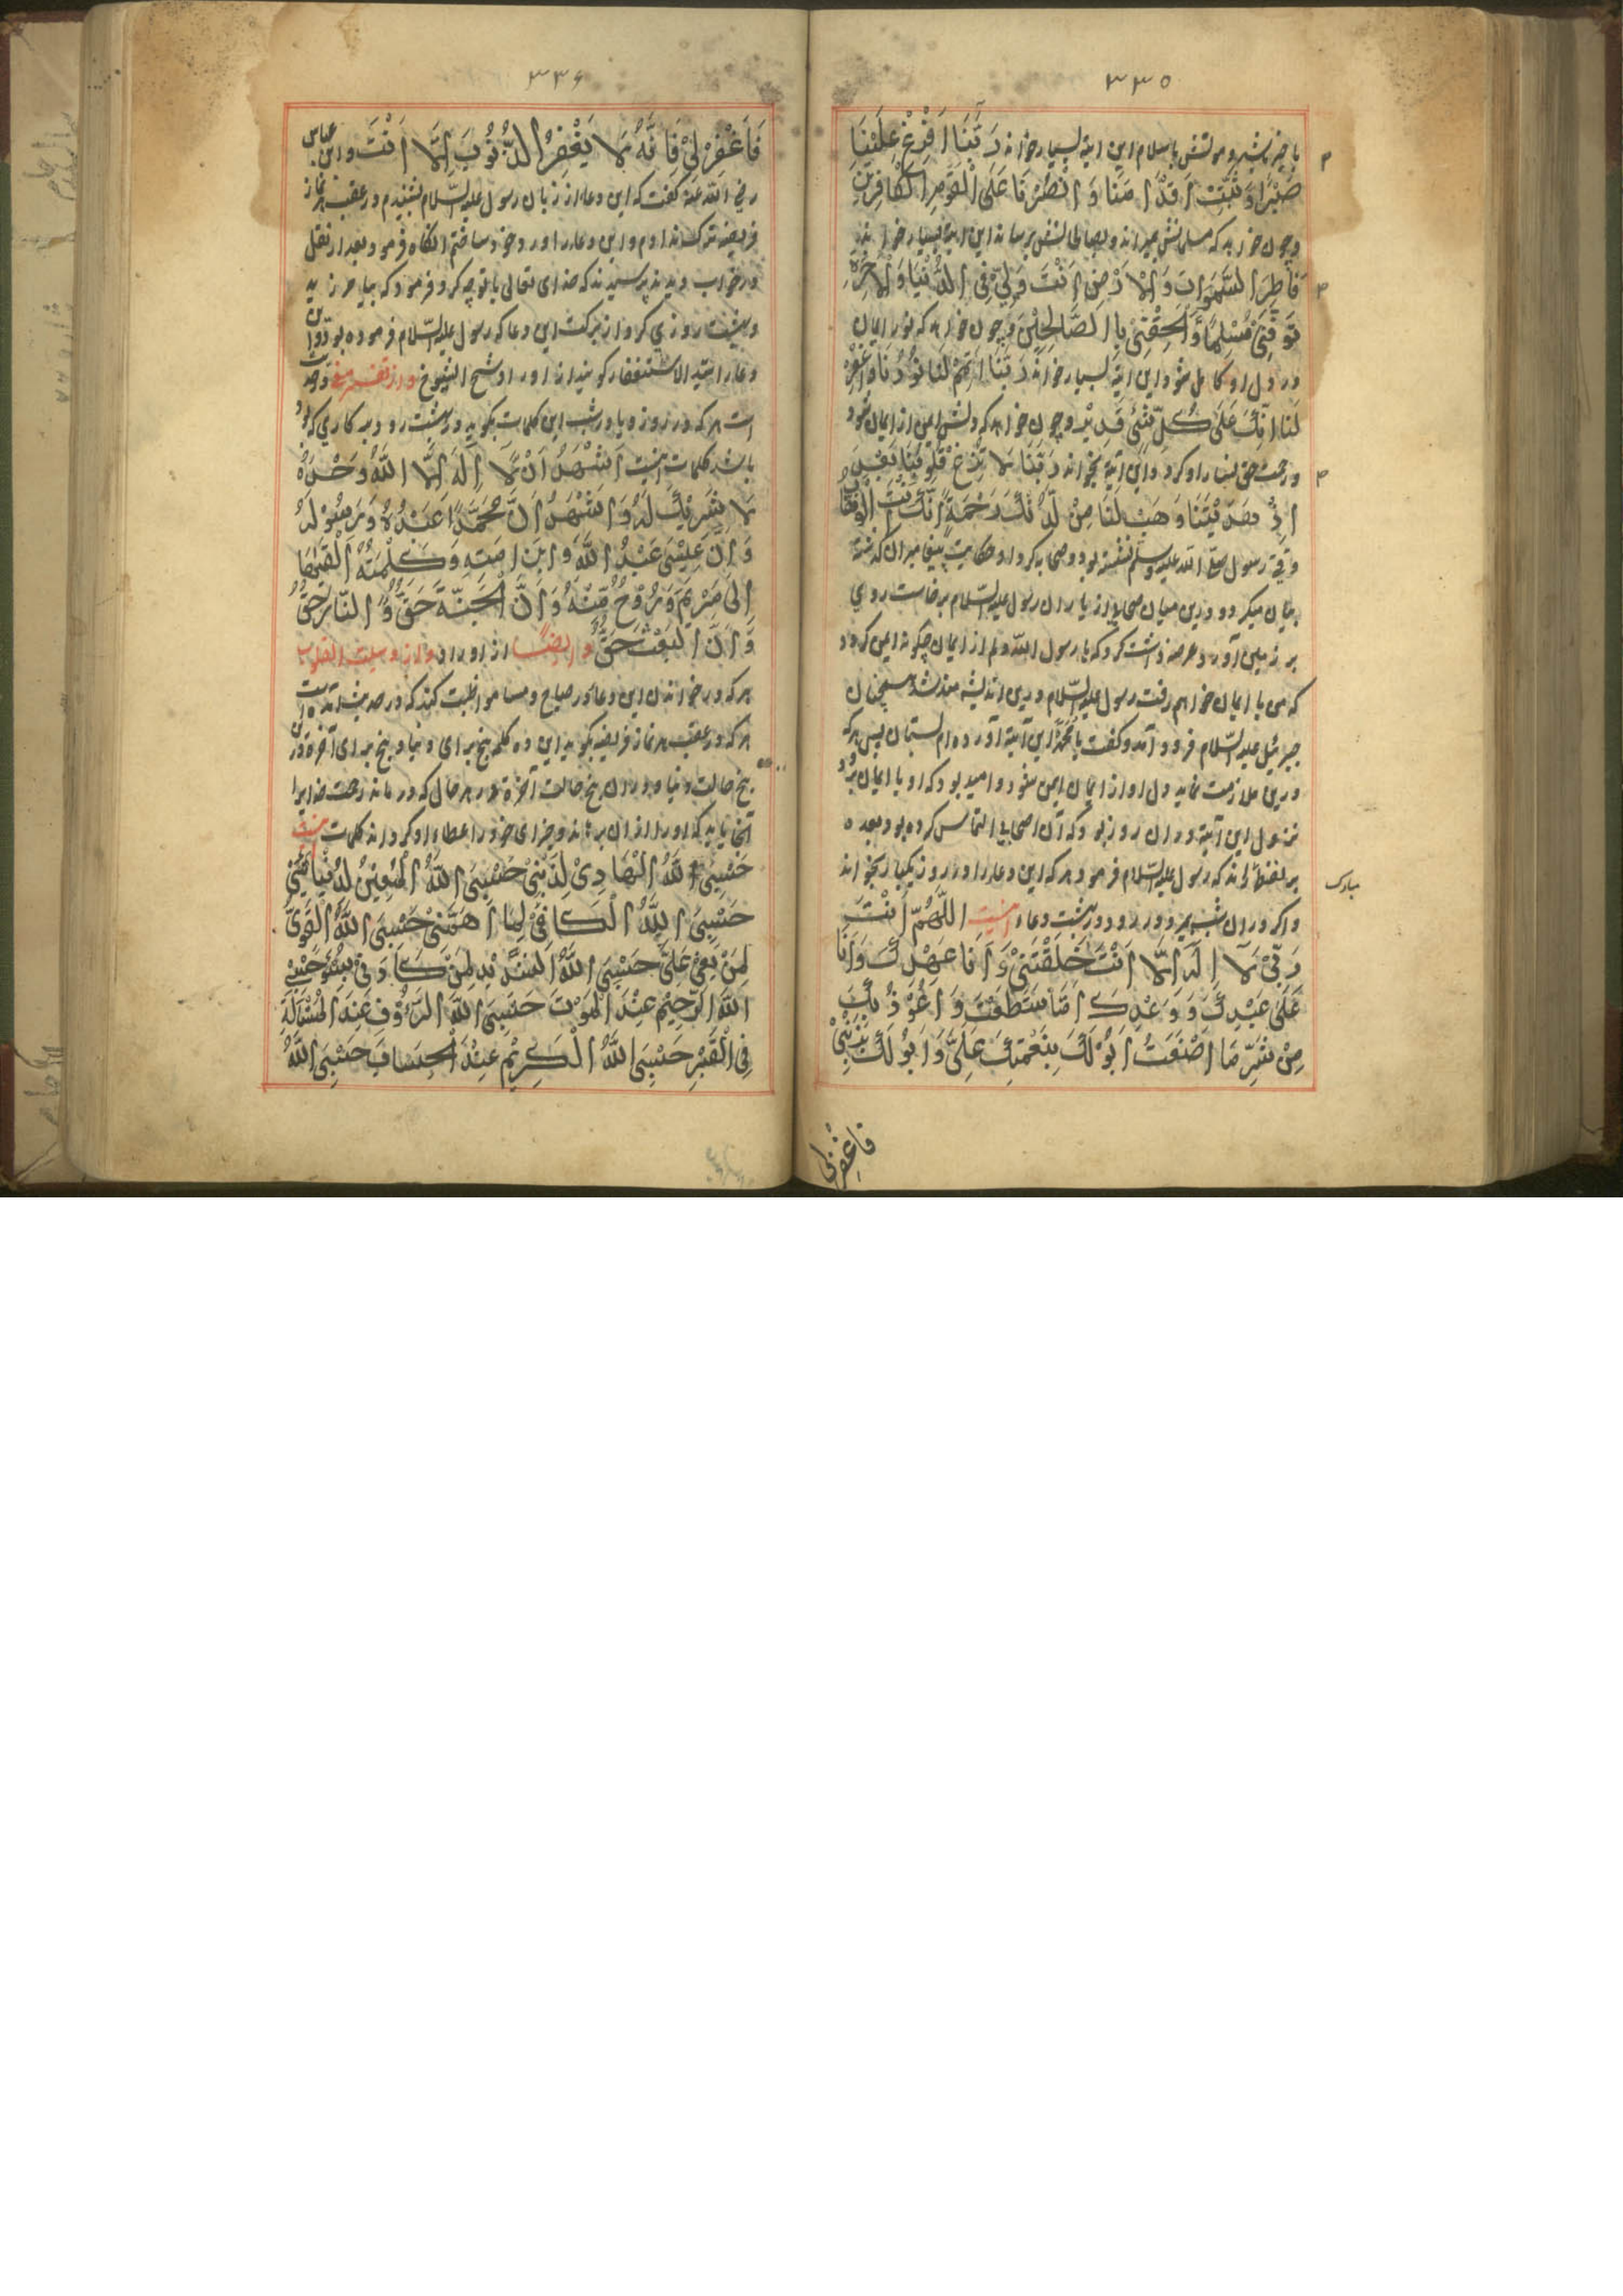 ۳۳۵
با خیر بشیر و موتش باسلام این آیة بسیار خواند رَبَّنَا اَفْرِغْ عَلَیْنَا
صَبْرًا وَثَبِّتْ اَقْدَامَنَا وَانْصُرْنَا عَلَی الْقَوْمِ الْکَافِرِیْنَ
و چون خواهد که مسلمانش میراند و بصالحانش برساند این آیة بسیار خواند
فَاطِرَ السَّمَوَاتِ وَالْاَرْضِ اَنْتَ وَلِیِّ فِی الدُّنْیَا وَالْاٰخِرَةِ
تَوَفَّنِیْ مُسْلِمًا وَّاَلْحِقْنِیْ بِاالصَّالِحِیْنَ و چون خواهد که نور ایمان
در دل او کامل شود این آیة بسیار خواند رَبَّنَا اَتْمِمْ لَنَا نُوْرَنَا وَاغْفِرْ
لَنَا اِنَّکَ عَلَی کُلِّ شَیْءٍ قَدِیْر و چون خواهد که دلش ایمن از ایمان شود
و رحمت حق نثار او کردد این آیة بخواند رَبَّنَا لَا تُزِغْ قُلُوْبَنَا بَعْدَ
اِذْ هَدَیْتَنَا وَهَبْ لَنَا مِنْ لَّدُنْکَ رَحْمَةً اِنَّکَ اَنْتَ الْوَهَّابُ
وقتی رسول صلی الله علیه وسلم نشسته بود و صحابه کرد او حکایت پیغامبران کذشته
بیان میکرد و درین میان صحابی از یاران رسول علیه السّلام برخاست روی
بر زمین آورد عرضه داشت کرد که یا رسول الله دلم از ایمان چکونه ایمن کردد
که من با ایمان خواهم رفت رسول علیه السّلام درین اندیشه مند شد همچنان
جبرئیل علیه السّلام فرود آمد و کفت یا محمّد این آیة آورده ام بستان پس هر که
درین ملازمت نماید دل او از ایمان ایمن شود و امید بود که او با ایمان برود
نزول این آیة در آن روز بود که آن اصحابی التماس کرده بود بعده
رسول علیه السّلام فرمود هر که این دعا را در روز یکبار بخواند
مبارک
و اکر در آن شب بمیرد در رود در بهشت دعاء اینست اَللّٰهُمَّ اَنْتَ
رَبِّیْ لَا اِلٰهَ اِلَّا اَنْتَ خَلَقْتَنِیْ وَاَنَا عَهْدِکَ وَاَنَا
عَلَیٰ عَبْدِکَ وَوَعْدِکَ مَا اسْتَطَعْتُ وَاَعُوْذُ بِکَ
مِنْ شَرِّ مَا اَصْنَعْتُ اَبُوْلَکَ بِنِعْمَتِکَ عَلَیَّ وَاَبُوْلَکَ بِذَنْبِیْ
فاغفرلی
۳۳۶
فَاغْفِرْلِیْ فَاِنَّهُ لَا یَغْفِرُ الذُّنُوْبَ اِلَّا اَنْتَ و ابن عباس
رضی الله عنه کفت که این دعا از زبان رسول علیه السّلام بشنیدم در عقب نماز
فریضه ترک نداوم و این دعا را ورد خود ساختم آنکاه فرمود بعد از نقل
در خواب دیدند پرسیدند که خدای تعالی با تو چه کرد فرمود که بیامرزید
و بهشت روزی کرد از برکت این دعا که رسول علیه السّلام فرموده بود و این
دعا را سید الاستغفار کویند از اوراد شیخ الشیوخ و از تفسیر مغنی
است هر که در روز و یا در شب این کلمات بکوید در بهشت رود بهر کاری که
باشد کلمات اینست اَشْهَدُ اَنْ لَّا اِلٰهَ اِلَّا اللّٰهُ وَحْدَهُ
لَا شَرِیْکَ لَهُ وَاَشْهَدُ اَنَّ مُحَمَّدًا عَبْدُهُ وَرَسُوْلُهُ
وَاَنَّ عِیْسَی عَبْدُ اللّٰهِ وَابْنُ اَمَتِهِ وَکَلِمَتُهُ اَلْقَاهَا
اِلَی مَرْیَمَ وَرُوْحٌ مِّنْهُ وَاَنَّ الْجَنَّةَ حَقٌّ وَّالنَّارَ حَقٌّ
وَّاَنَّ الْبَعْثَ حَقٌّ و ایضًا از اوراد و از وسیلت القلوب
هر که در خواندن این دعا در صباح و مسا مواظبت کند که در حدیث آمده است
هر که در عقب هر نماز فریضه بکوید این ده کلمه پنج برای دنیا و پنج برای آخرة در
پنج حالت دنیا و در آن پنج حالت آخرة در هر حال که درماند رحمت خدایرا
آنجا یابد که او را از آن برهاند و جزای خود را عطاء او کرداند کلمات اینست
حَسْبِیَ اللّٰهُ الْهَادِیْ لِدِیْنِیْ حَسْبِیَ اللّٰهُ الْمُعِیْنُ لِدُنْیَایَ
حَسْبِیَ اللّٰهُ الْکَافِیْ لِمَا اَهَمَّنِیْ حَسْبِیَ اللّٰهُ الْقَوِیُّ
لِمَنْ بَغِیَ عَلَیَّ حَسْبِیَ اللّٰهُ الشَّدِیْدُ لِمَنْ کَادَنِیْ بِسُوْءٍ حَسْبِیَ
اللّٰهُ الرَّحِیْمُ عِنْدَ الْمَوْتِ حَسْبِیَ اللّٰهُ الرَّءُوْفُ عِنْدَ الْمَسْأَلَةِ
فِی الْقَبْرِ حَسْبِیَ اللّٰهُ الْکَرِیْمُ عِنْدَ الْحِسَابِ حَسْبِیَ اللّٰهُ